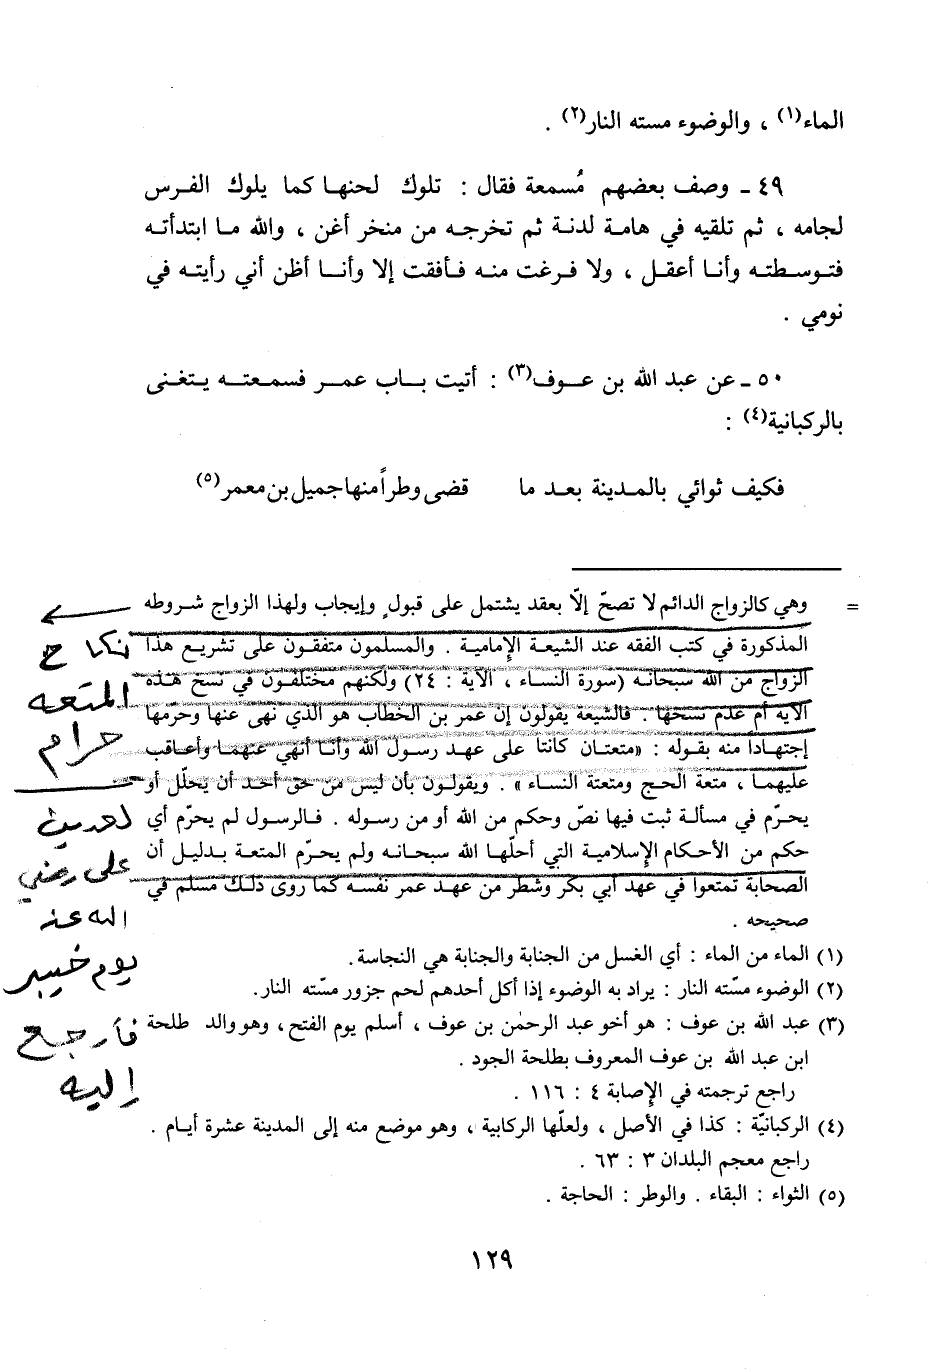 الماء(١) ، والوضوء مسته النار(٢) .
٤٩ ـ وصف بعضهم مُسمعة فقال : تلوك لحنها كما يلوك الفرس
لجامه ، ثم تلقيه في هامة لدنة ثم تخرجه من منخر أغن ، والله ما ابتدأته
فتوسطته وأنا أعقل ، ولا فرغت منه فأفقت إلا وأنا أظن أني رأيته في
نومي .
٥٠ ـ عن عبد الله بن عوف(٣) : أتيت باب عمر فسمعته يتغنى
بالركبانية(٤) :
فكيف ثوائي بالمدينة بعد ما قضى وطراً منها جميل بن معمر(٥)
= وهي كالزواج الدائم لا تصحّ إلّا بعقد يشتمل على قبول وإيجاب ولهذا الزواج شروطه
المذكورة في كتب الفقه عند الشيعة الإمامية . والمسلمون متفقون على تشريع هذا
الزواج من الله سبحانه (سورة النساء ، الآية : ٢٤) ولكنهم مختلفون في نسخ هذه
الآية أم عدم نسخها . فالشيعة يقولون إن عمر بن الخطاب هو الذي نهى عنها وحرّمها
إجتهاداً منه بقوله : «متعتان كانتا على عهد رسول الله وأنا أنهي عنهما وأعاقب
عليهما ، متعة الحج ومتعة النساء» . ويقولون بأن ليس من حق أحد أن يحلّل أو
يحرّم في مسألة ثبت فيها نصّ وحكم من الله أو من رسوله . فالرسول لم يحرّم أي
حكم من الأحكام الإسلامية التي أحلّها الله سبحانه ولم يحرّم المتعة بدليل أن
الصحابة تمتعوا في عهد أبي بكر وشطر من عهد عمر نفسه كما روى ذلك مسلم في
صحيحه .
(١) الماء من الماء : أي الغسل من الجنابة والجنابة هي النجاسة.
(٢) الوضوء مسّته النار : يراد به الوضوء إذا أكل أحدهم لحم جزور مسّته النار.
(٣) عبد الله بن عوف : هو أخو عبد الرحمٰن بن عوف ، أسلم يوم الفتح، وهو والد طلحة
ابن عبد الله بن عوف المعروف بطلحة الجود .
راجع ترجمته في الإصابة ٤ : ١١٦ .
(٤) الركبانيّة : كذا في الأصل ، ولعلّها الركابية ، وهو موضع منه إلى المدينة عشرة أيام .
راجع معجم البلدان ٣ : ٦٣ .
(٥) الثواء : البقاء . والوطر : الحاجة .
١٢٩
نكاح
المتعه
حرام
لحديث
على رضي
الله عنه
يوم خيبر
فأرجع
إليه